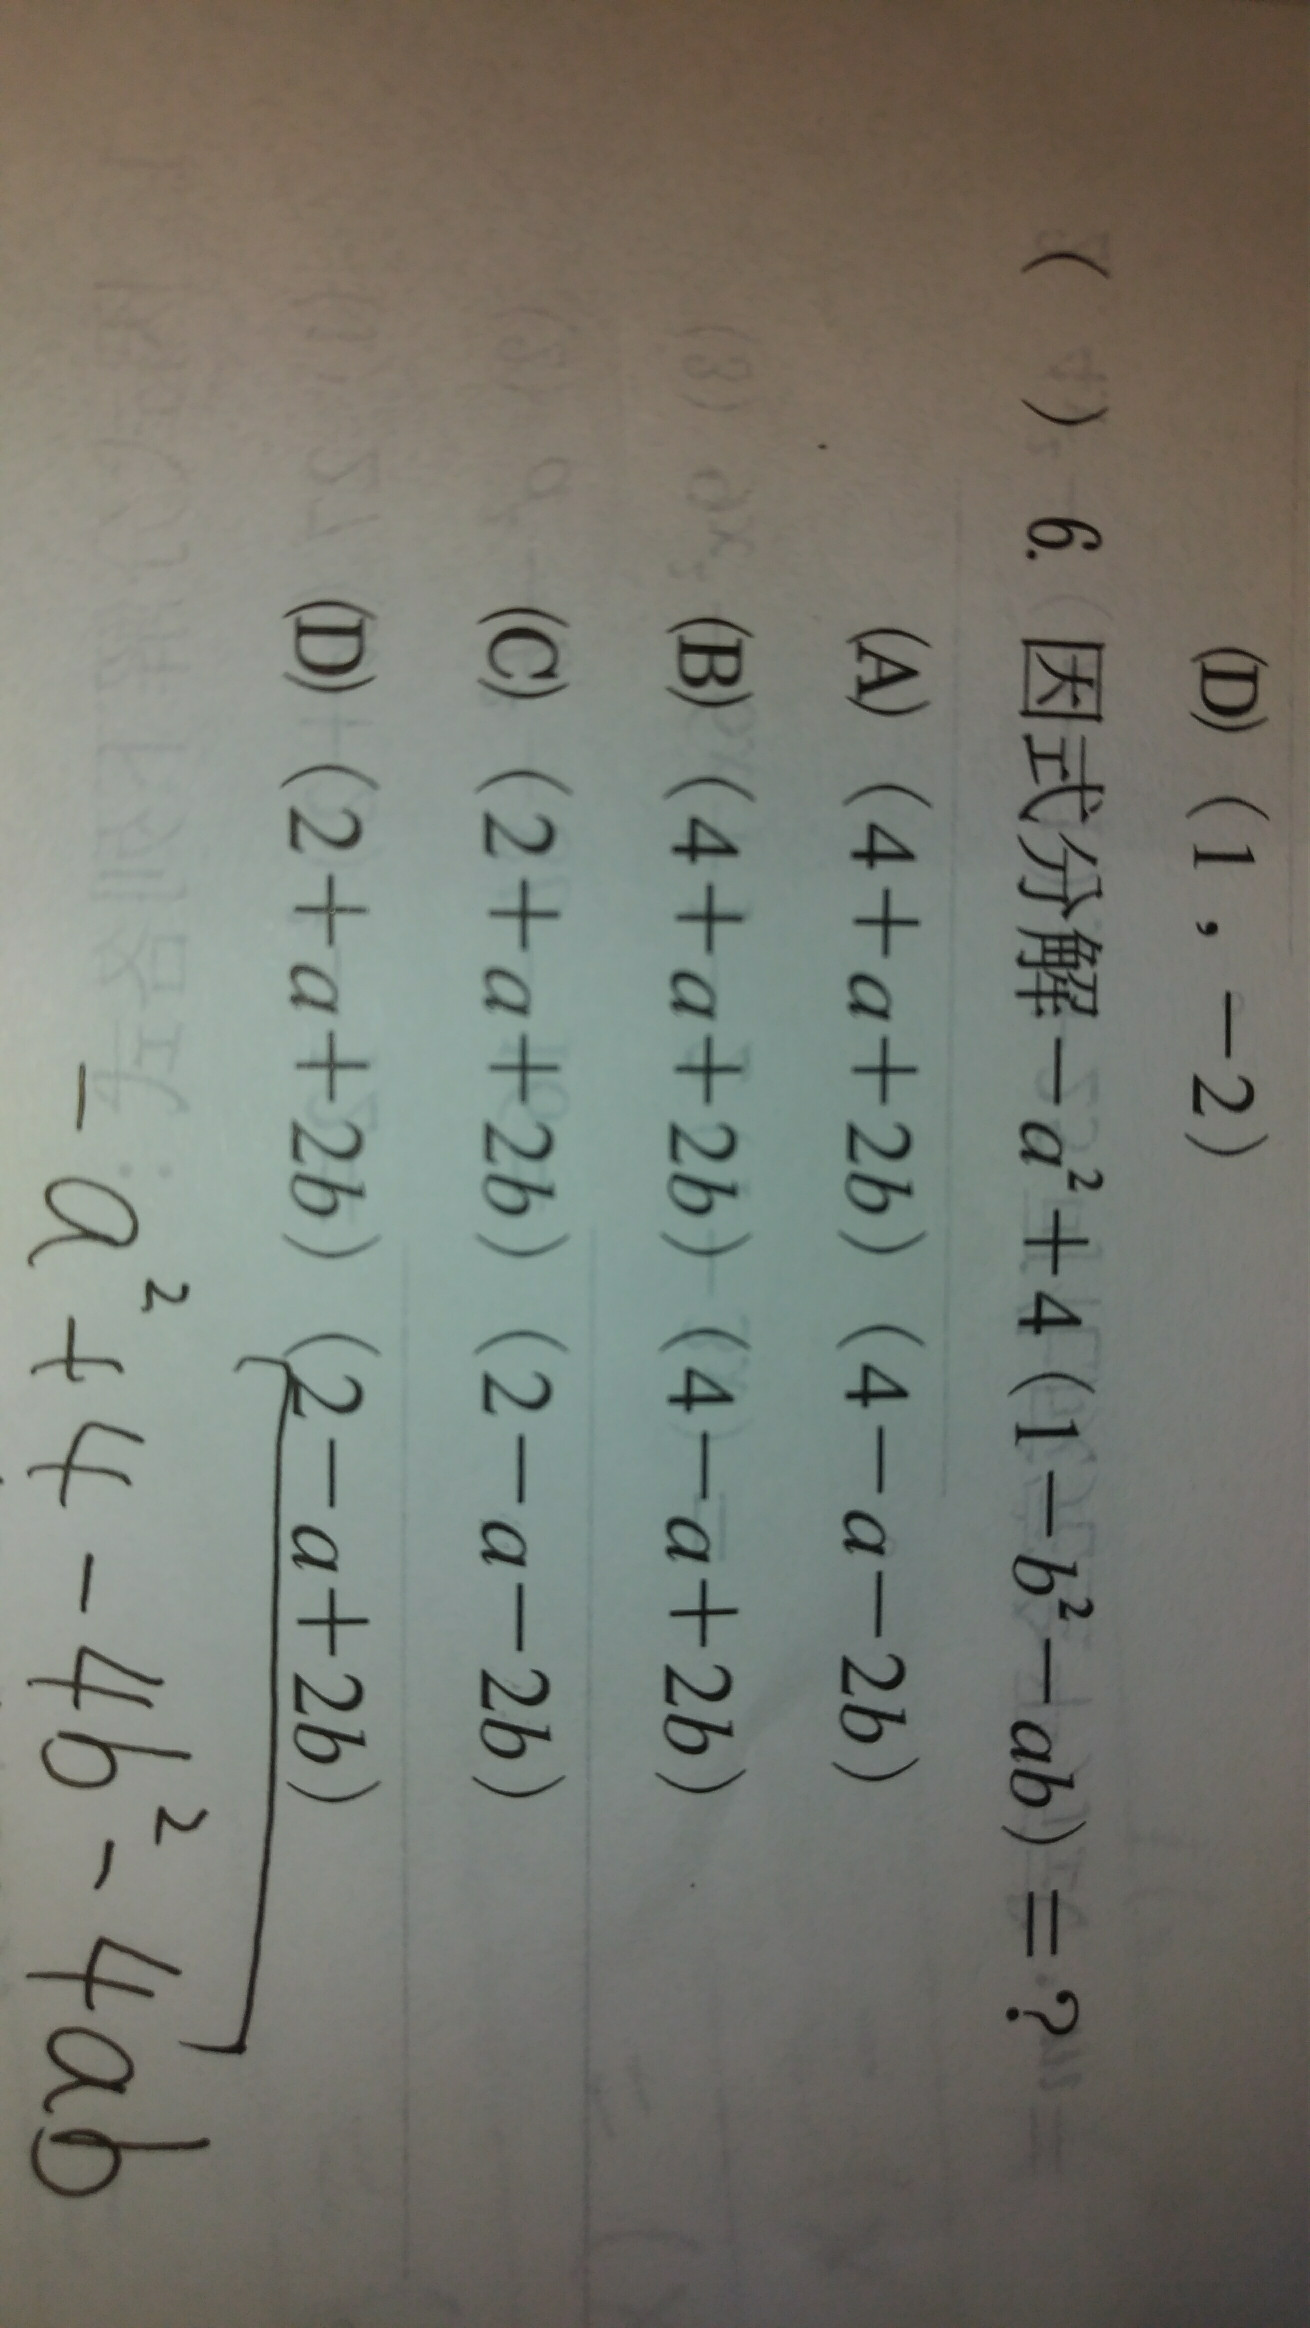 (D)（1，－2）
（　）6. 因式分解－a²＋4（1－b²－ab）＝？
(A)（4＋a＋2b）（4－a－2b）
(B)（4＋a＋2b）（4－a＋2b）
(C)（2＋a＋2b）（2－a－2b）
(D)（2＋a＋2b）（2－a＋2b）
－a²＋4－4b²－4ab